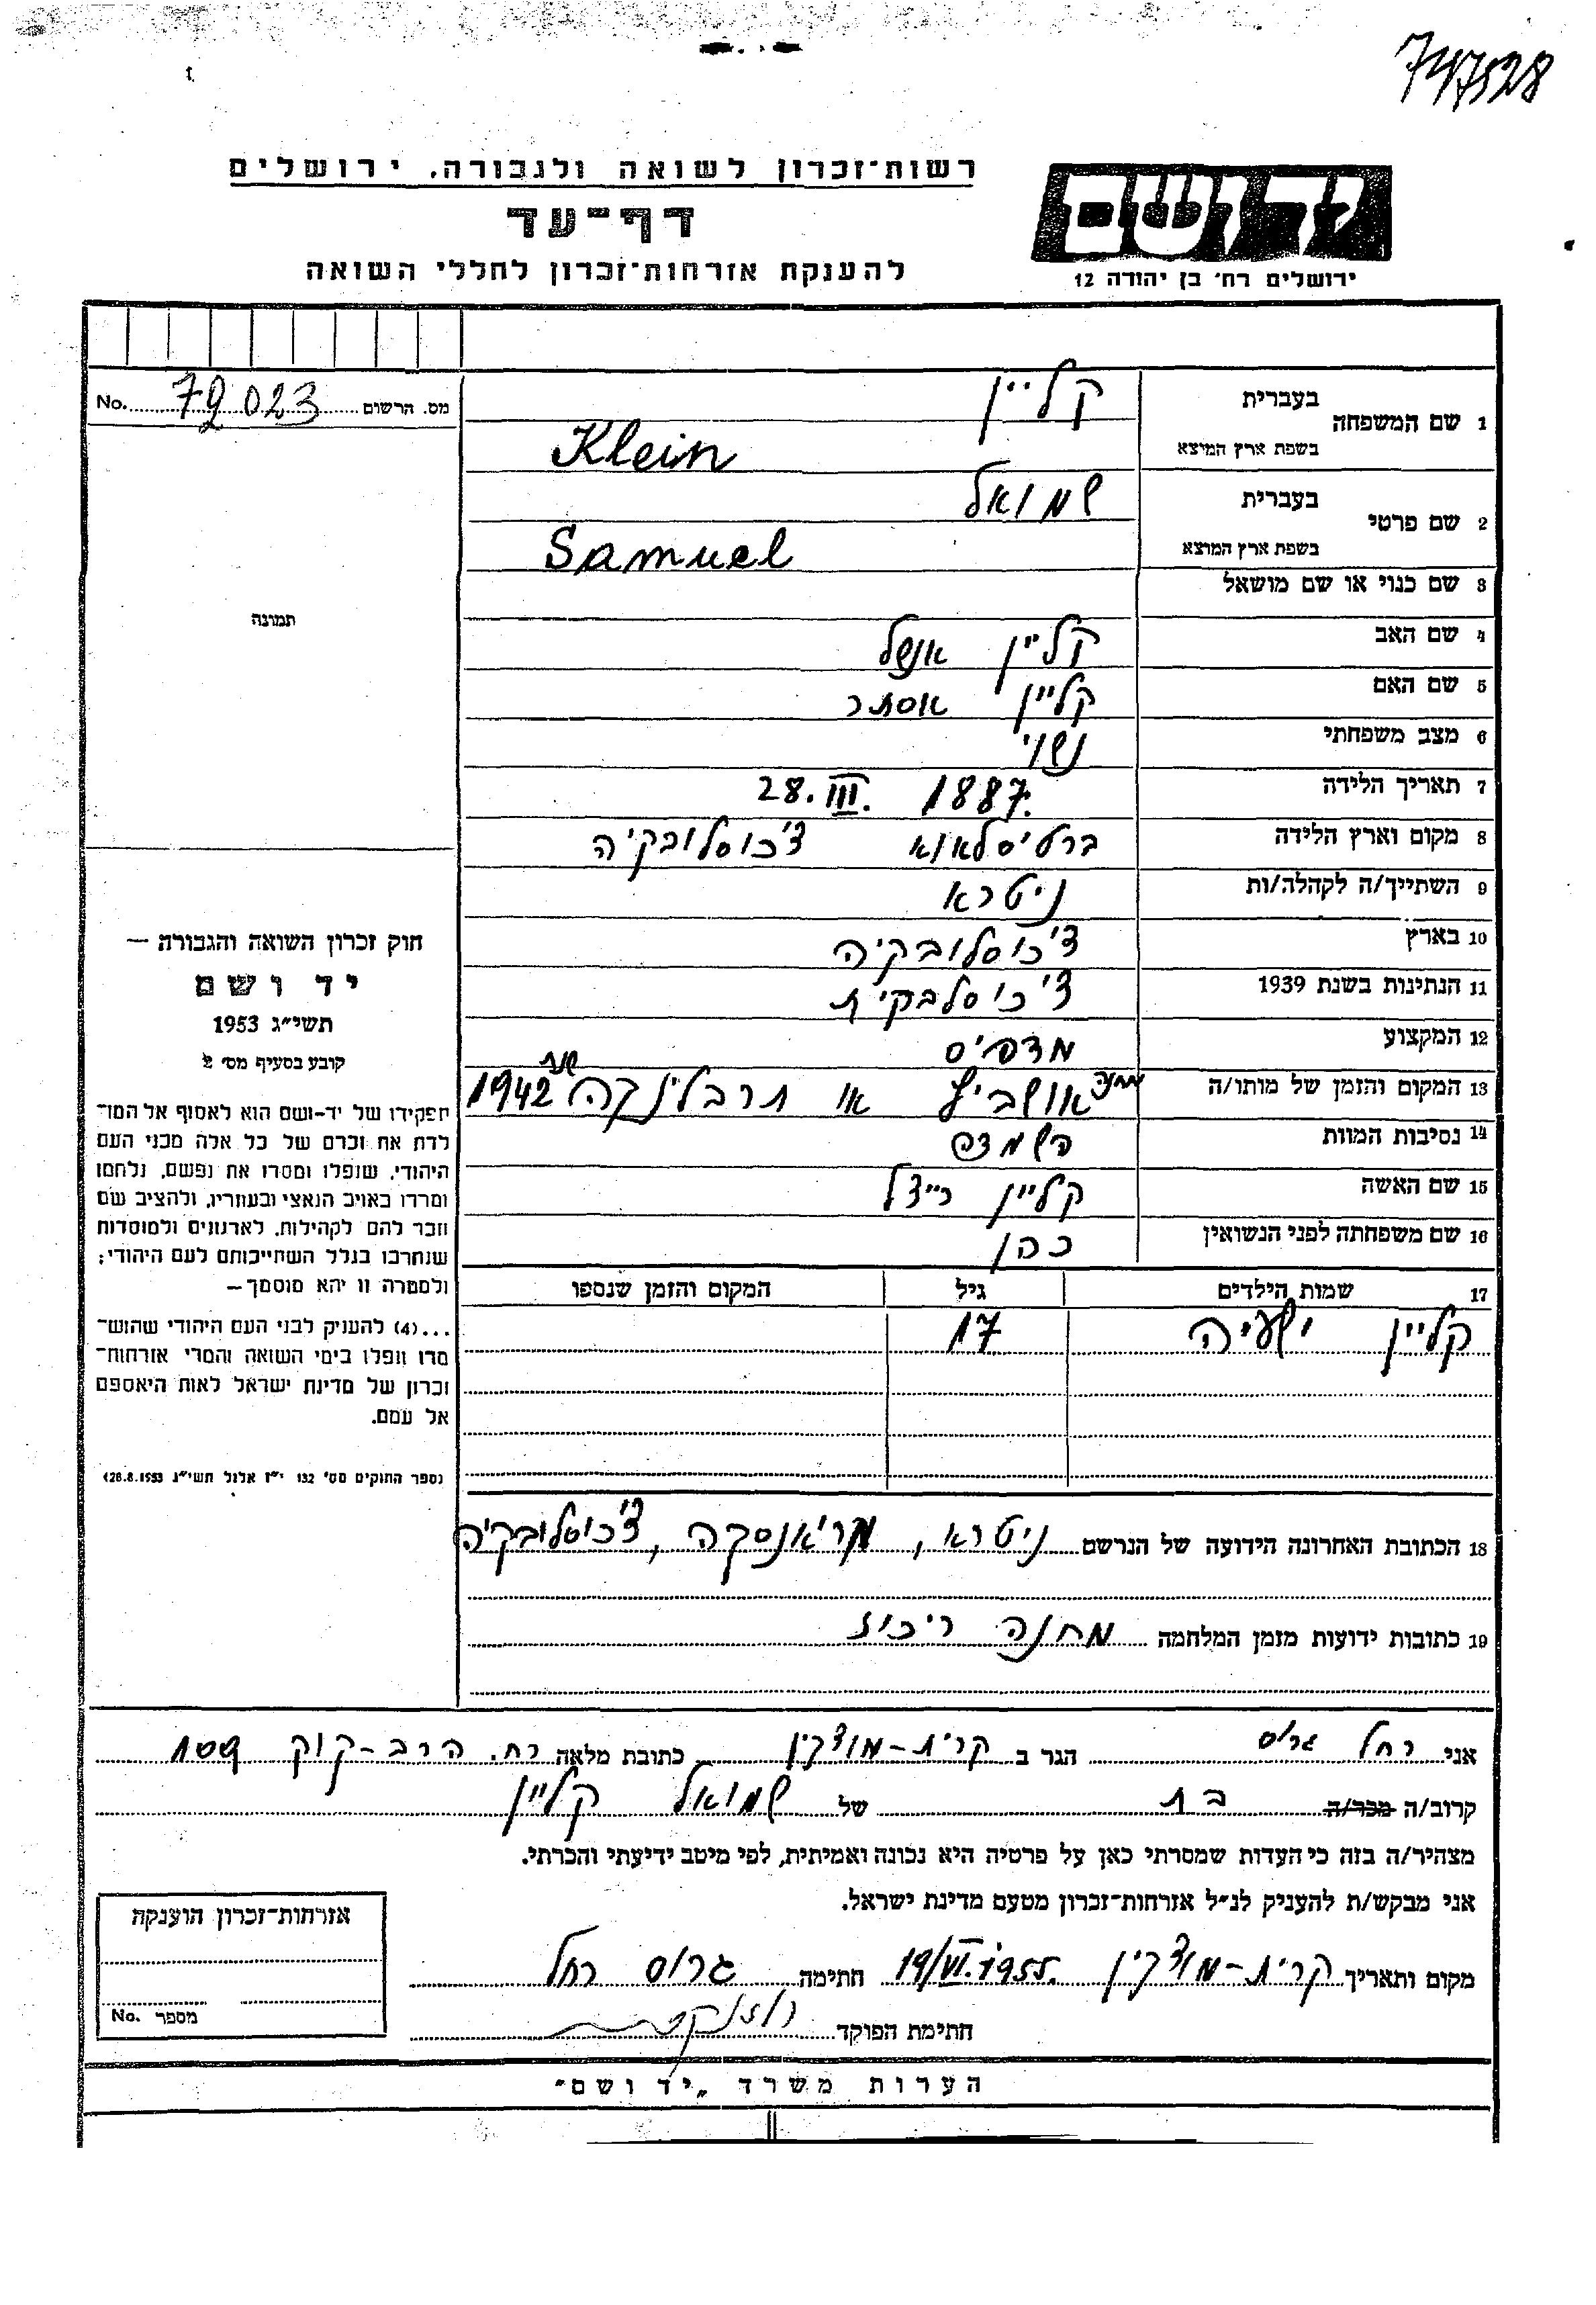 747528
רשות־זכרון לשואה ולגבורה, ירושלים
דף־עד
להענקת אזרחות־זכרון לחללי השואה
יד ושם
ירושלים רח' בן יהודה 12
No. 79023 מס. הרשום
תמונה
חוק זכרון השואה והגבורה —
יד ושם
תשי"ג 1953
קובע בסעיף מס' 2
תפקידו של יד-ושם הוא לאסוף אל המו־
לדת את זכרם של כל אלה מבני העם
היהודי, שנפלו ומסרו את נפשם, נלחמו
ומרדו באויב הנאצי ובעוזריו, ולהציב שם
וזכר להם לקהילות, לארגונים ולמוסדות
שנחרבו בגלל השתייכותם לעם היהודי;
ולמטרה זו יהא מוסמך —
...(4) להעניק לבני העם היהודי שהוש־
מדו ונפלו בימי השואה והמרי אזרחות־
זכרון של מדינת ישראל לאות היאספם
אל עמם.
(ספר החוקים מס' 132 י"ז אלול תשי"ג 28.8.1953)
1 שם המשפחה בעברית קליין
בשפת ארץ המוצא Klein
2 שם פרטי בעברית שמואל
בשפת ארץ המוצא Samuel
3 שם כנוי או שם מושאל
4 שם האב קליין אנשל
5 שם האם קליין אסתר
6 מצב משפחתי נשוי
7 תאריך הלידה 28. III. 1887.
8 מקום וארץ הלידה ברטיסלאוא צ'כוסלובקיה
9 השתייך/ה לקהלה/ות ניטרא
10 בארץ צ'כוסלובקיה
11 הנתינות בשנת 1939 צ'כוסלבקית
12 המקצוע מדפיס
13 המקום והזמן של מותו/ה מחנה אושביץ או תרבלינקה שנת 1942
14 נסיבות המוות השמדה
15 שם האשה קליין רייזל
16 שם משפחתה לפני הנשואין כהן
17 שמות הילדים גיל המקום והזמן שנספו
קליין ישעיה 17
18 הכתובת האחרונה הידועה של הנרשם ניטרא, מריאנסקה, צ'כוסלובקיה
19 כתובות ידועות מזמן המלחמה מחנה ריכוז
אני רחל גרוס הגר ב קרית-מוצקין כתובת מלאה רח. הרב-קוק
קרוב/ה מכר/ה בת של שמואל קליין
מצהיר/ה בזה כי העדות שמסרתי כאן על פרטיה היא נכונה ואמיתית, לפי מיטב ידיעתי והכרתי.
אני מבקש/ת להעניק לנ"ל אזרחות־זכרון מטעם מדינת ישראל.
מקום ותאריך קרית-מוצקין 19/VI.1955. חתימה גרוס רחל
חתימת הפוקד
אזרחות־זכרון הוענקה
מספר No.
הערות משרד „יד ושם"